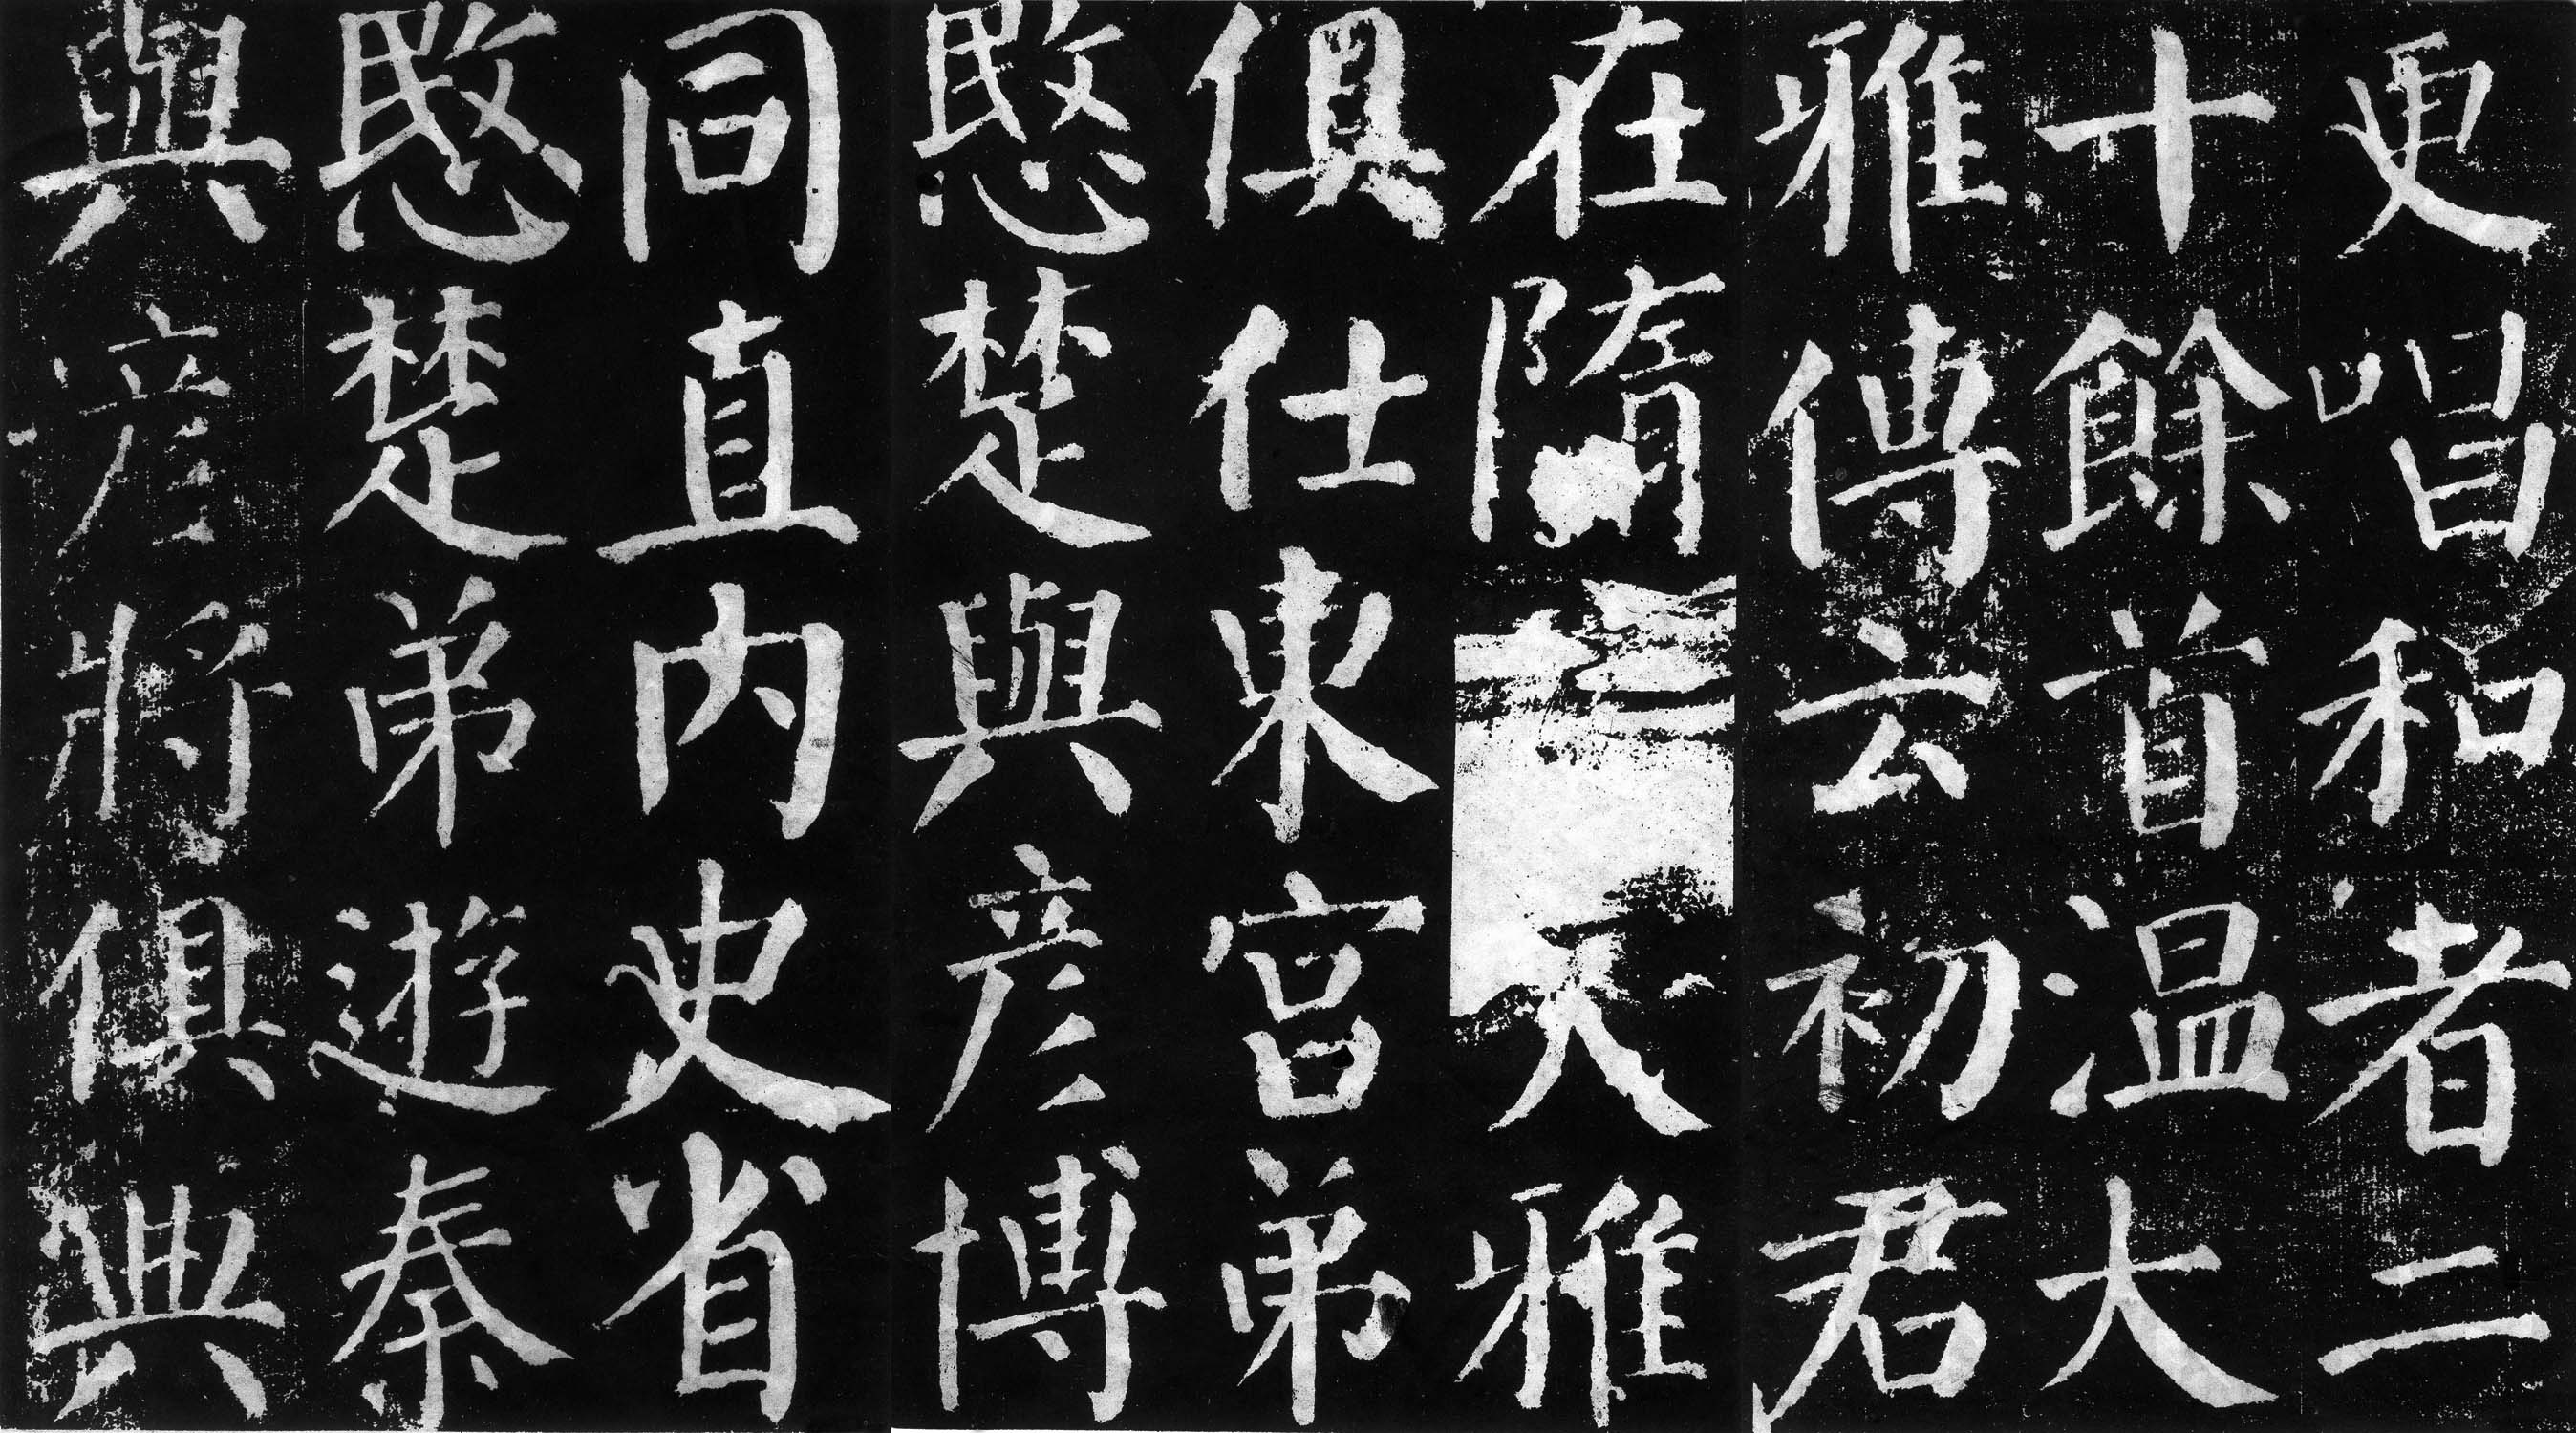 更唱和者二
十餘首温大
雅傳云初君
在隋大雅
俱仕東宮弟
愍楚與彦博
同直内史省
愍楚弟遊秦
與彦將俱典